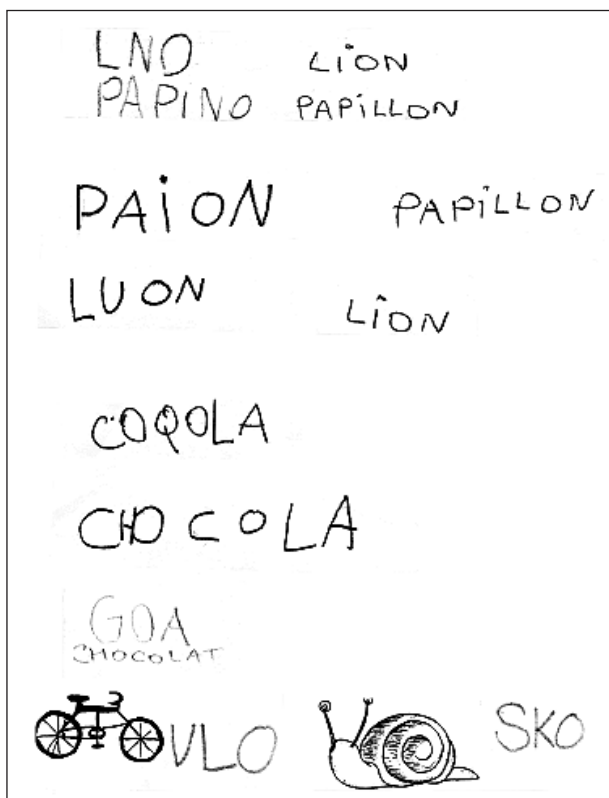 LNO LION
PAPINO PAPILLON
PAION PAPILLON
LUON LION
COQOLA
CHOCOLA
GOA
CHOCOLAT
VLO SKO